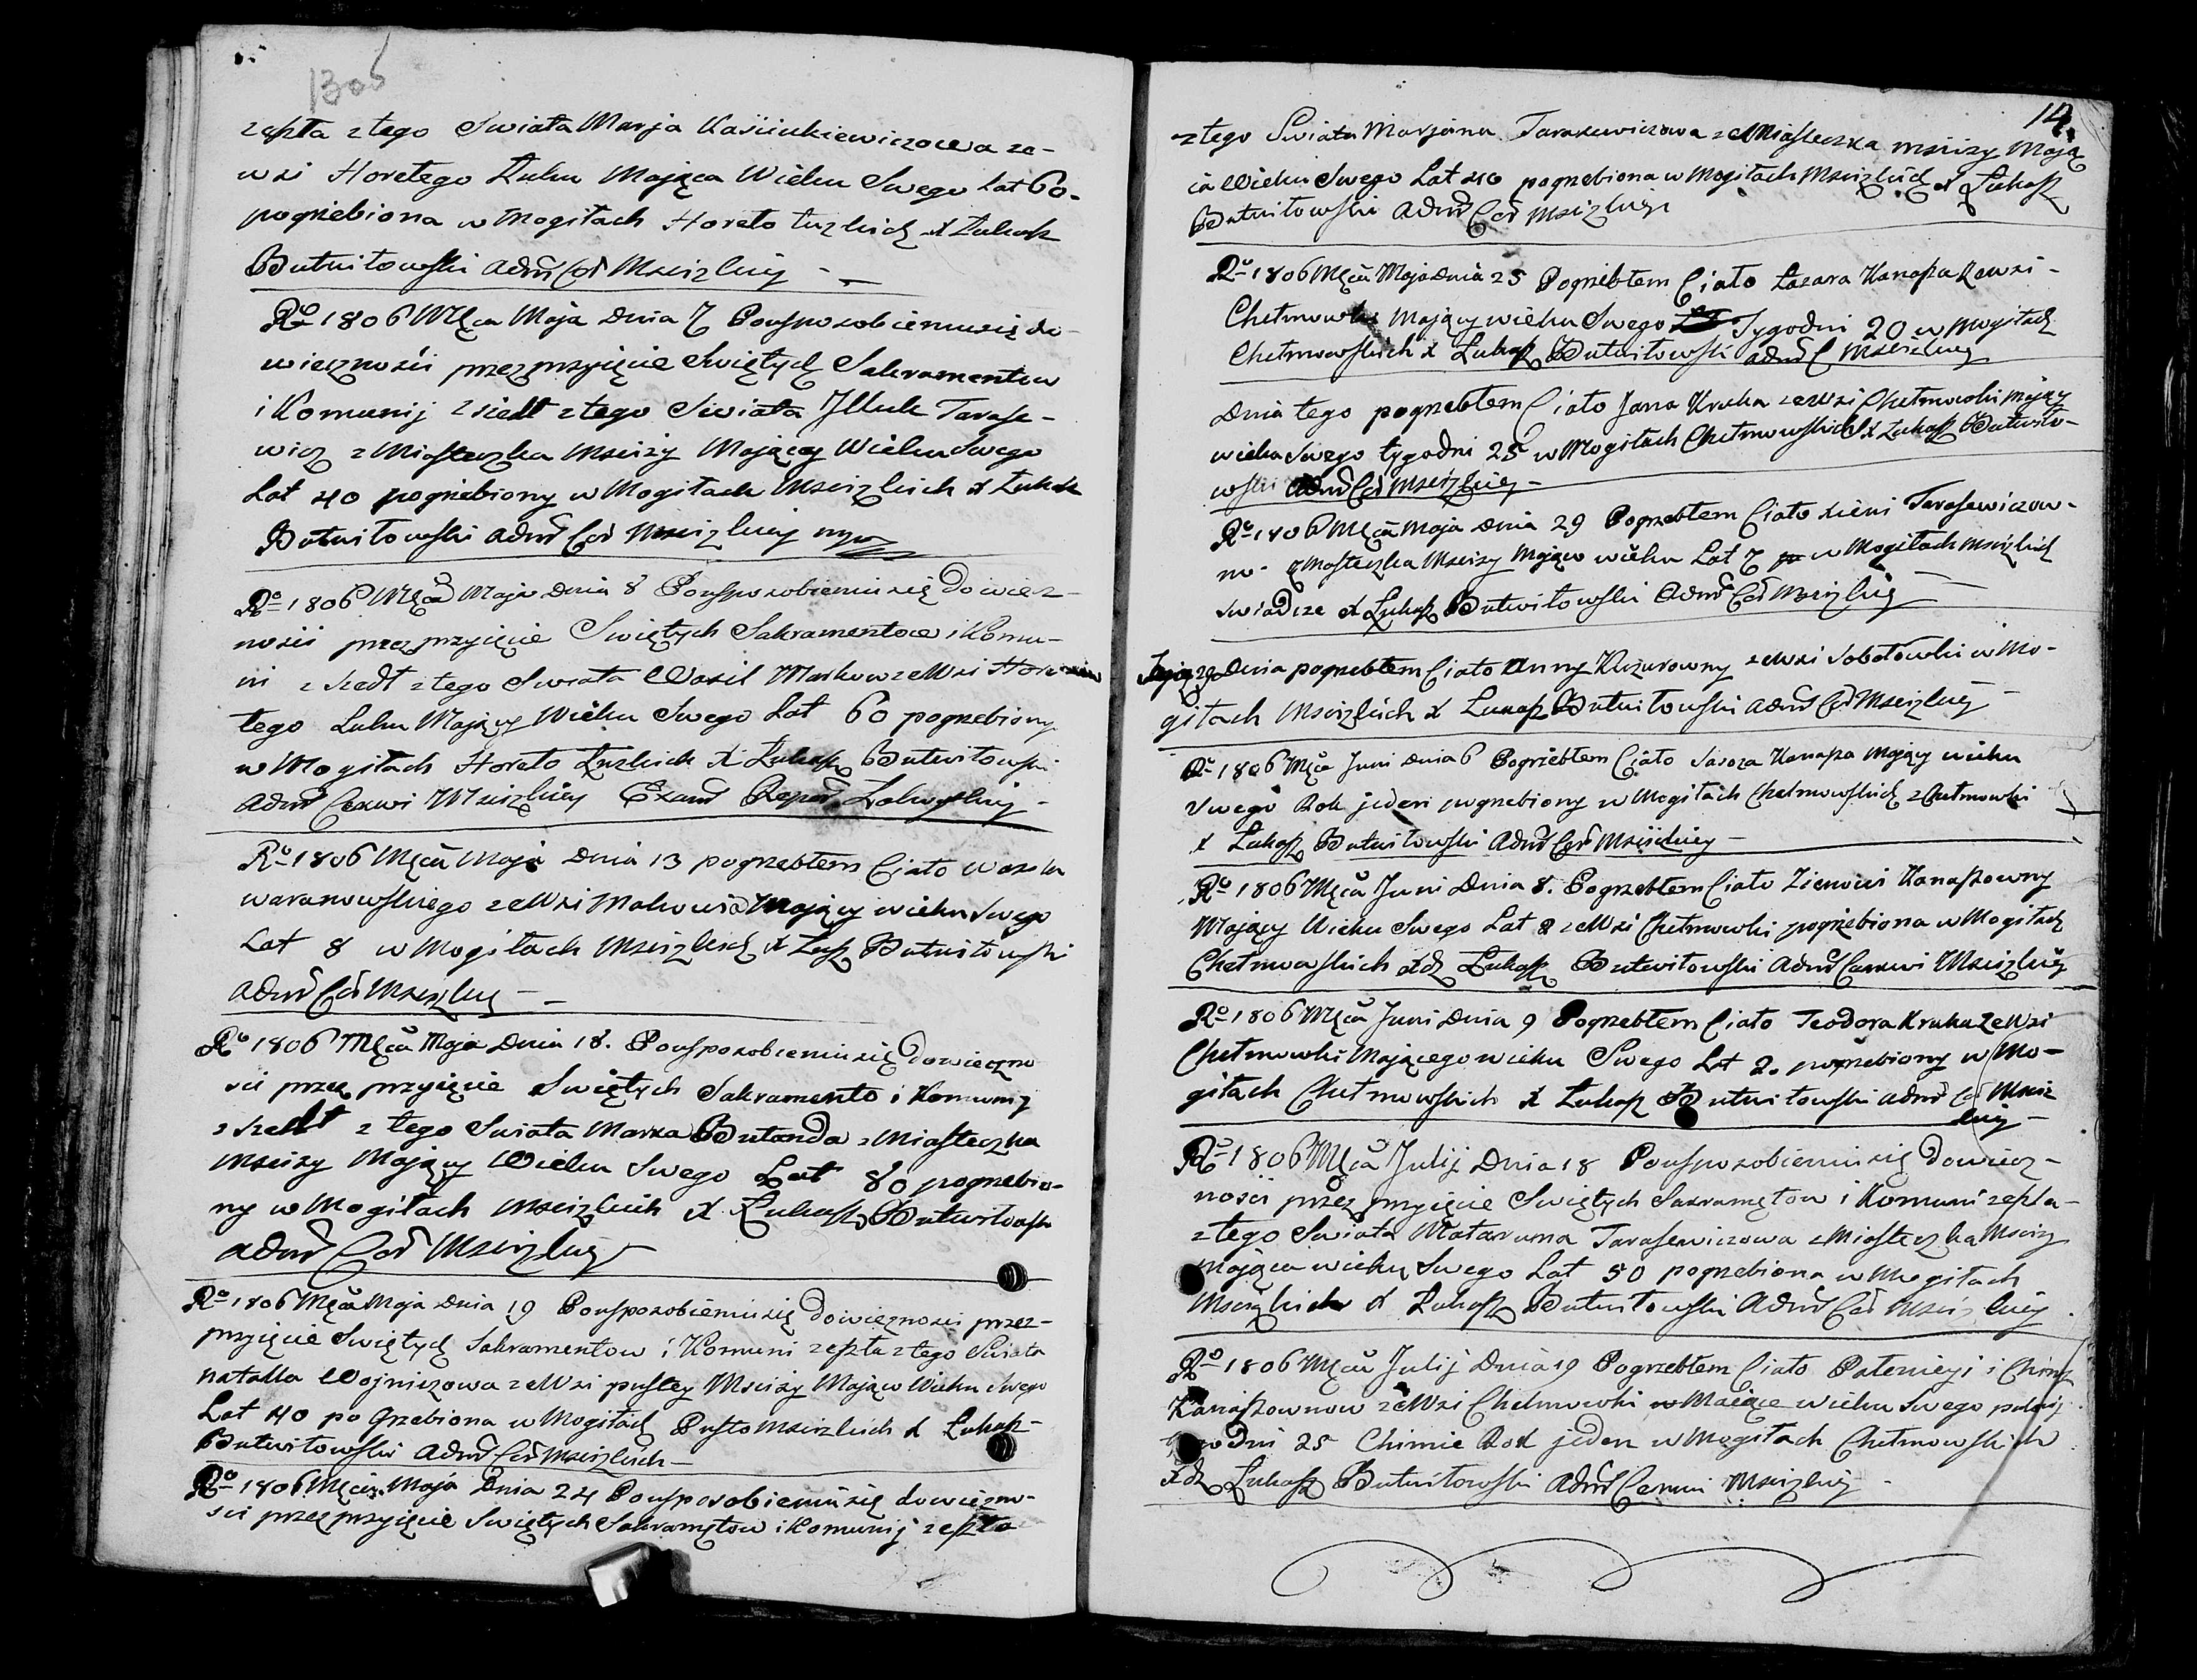 1306
zeszła z tego Swiata Marja Kaściukiewiczowa ze-
wsi Horełego Ługu Mająca Wieku Swego Lat 60-
pogrzebiona w Mogiłach Horeło Łuzkich X Łukasz
Butwiłowski Admr Cer Mscizkiey -
Ro 1806 Mca Maja Dnia 7 Pousposobieniu się do
wiecznosci przez przyięcie Swiętych Sakramentow
i Komunij zszedł z tego Swiata Jlluk Tarase-
wicz z Miasteczka Mscizy Mający Wieku Swego
Lat 40 pogrzebiony w Mogiłach Mscizkich X Łukasz
Butwiłowski Admr Cer Mscizkiey
Ro 1806 Mca Maja Dnia 8 Pousposobieniu się do wiecz-
nosci przez przyięcie Swiętych Sakramentow i Komu-
ni zszedł z tego Swiata Wasil Markow ze Wsi Hore
łego Ługu Mający Wieku Swego Lat 60 pogrzebiony
w Mogiłach Horeło Łuzkich X Łukasz Butwiłowski
Admr Cerkwi Mscizkiey
Ro 1806 Mca Maja Dnia 13 pogrzebłem Ciało
waranowskiego ze Wsi Mający wieku Swego
Lat 8 w Mogiłach Mscizkich X Łuk Butwiłowski
Admr Cer Mscizkiey -
Ro 1806 Mca Maja Dnia 18. Pousposobieniu się do wieczno
sci przez przyięcie Swiętych Sakramento i Komuniy
zszedł z tego Swiata Marka Butanda z Miasteczka
Mscizy Mający Wieku Swego Lat 80 pogrzebio-
ny w Mogiłach Mscizkich X Łukasz Butwiłowski
Admr Cer Mscizkiey
Ro 1806 Mca Maja Dnia 19 Pousposobieniu się do wiecznosci przez-
przyięcie Swiętych Sakramentow i Komuni zeszła z tego Swiata
natalla Wojniczowa ze Wsi pustey Mscizy Mająca Wieku Swego
Lat 40 pogrzebiona w Mogiłach Pusto Mscizkich X Łukasz-
Butwiłowski Admr Cer Mscizkich -
Ro 1806 Mca Maja Dnia 24 Pousposobieniu się do wieczno-
sci przez przyięcie Swiętych Sakramętow i Komunij zeszła
14.
z tego Swiata Marjana Tarasewiczowa z Miasteczka Mscizy Mają
ca Wieku Swego Lat 40 pogrzebiona w Mogiłach Mscizkich X Łukasz
Butwiłowski Admr Cer Mscizkiey
Ro 1806 Mca Maja Dnia 25 Pogrzebłem Ciało Łazara Kanaszka ze wsi -
Chełmowki Mający wieku Swego Tygodni 20 w Mogiłach
Chełmowskich X Łukasz Butwiłowski Admr C Mscizkiey
Dnia tego pogrzebłem Ciało Jana Kruka ze Wsi Chełmowki mający
wieku Swego tygodni 25 w Mogiłach Chełmowskich X Łukasz Butwiło-
wski Admr Cer Mscizkiey -
Ro 1806 Mca Maja Dnia 29 Pogrzebłem Ciało Tarasewiczow-
ny z Miasteczka Mscizy Mająca wieku Lat 7 w Mogiłach Mscizkich
swiadcze X Łukasz Butwiłowski Admr Cer Mscizkiey
29 Dnia pogrzebłem Ciało Anny ze Wsi Sobotowki w Mo-
giłach Mscizkich X Łukasz Butwiłowski Admr Cer Mscizkiey
Ro 1806 Mca Juni Dnia 6 Pogrzebłem Ciało Kanasza Mający wieku
Swego Rok jeden pogrzebiony w Mogiłach Chełmowskich z Chełmowki
X Łukasz Butwiłowski Admr Cer Mscizkiey -
Ro 1806 Mca Juni Dnia 8. Pogrzebłem Ciało Zienowi Kanaszowny
Mający Wieku Swego Lat 2 ze Wsi Chełmowki pogrzebiona w Mogiłach
Chełmowskich Xdz Łukasz Butwiłowski Admr Cerkwi Mscizkiey
Ro 1806 Mca Juni Dnia 9 Pogrzebłem Ciało Teodora Kruka ze Wsi
Chełmowki Mającego wieku Swego Lat 2. pogrzebiony w Mo-
giłach Chełmowskich X Łukasz Butwiłowski Admr Cer Msciz
kiey -
Ro 1806 Mca Julij Dnia 18 Pousposobieniu się do wiecz-
nosci przez przyięcie Swiętych Sakramętow i Komuni zeszła-
z tego Swiata Tarasewiczowa z Miasteczka Mscizy
mająca wieku Swego Lat 50 pogrzebiona w Mogiłach
Mscizkich X Łukasz Butwiłowski Admr Cer Mscizkiey
Ro 1806 Mca Julij Dnia 19 Pogrzebłem Ciało i Chimy
Kanaszownow ze Wsi Chełmowki Maiące wieku Swego
tygodni 25 Chimie Rok jeden w Mogiłach Chełmowskich
Xdz Łukasz Butwiłowski Admr Cerkwi Mscizkiey